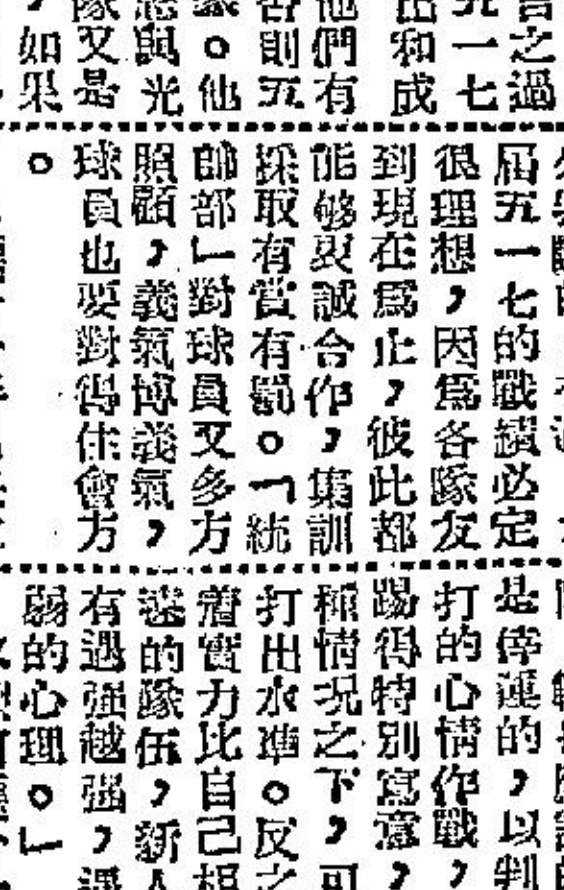 言之過
一七
和成
他們有
否則五
。他
與光
隊又是
，如果
屆五一七的戰績必定
很理想，因爲各隊友
到現在爲止，彼此都
能够衷誠合作，集訓
採取有賞有罰。「統
帥部」對球員又多方
照顧，義氣博義氣，
球員也要對得住會方
。
是倖運的，以判
打的心情作戰，
踢得特別寫意，
種情況之下，可
打出水準。反之
着實力比自己相
迷的隊伍，新人
有遇强越强，遇
弱的心理。」